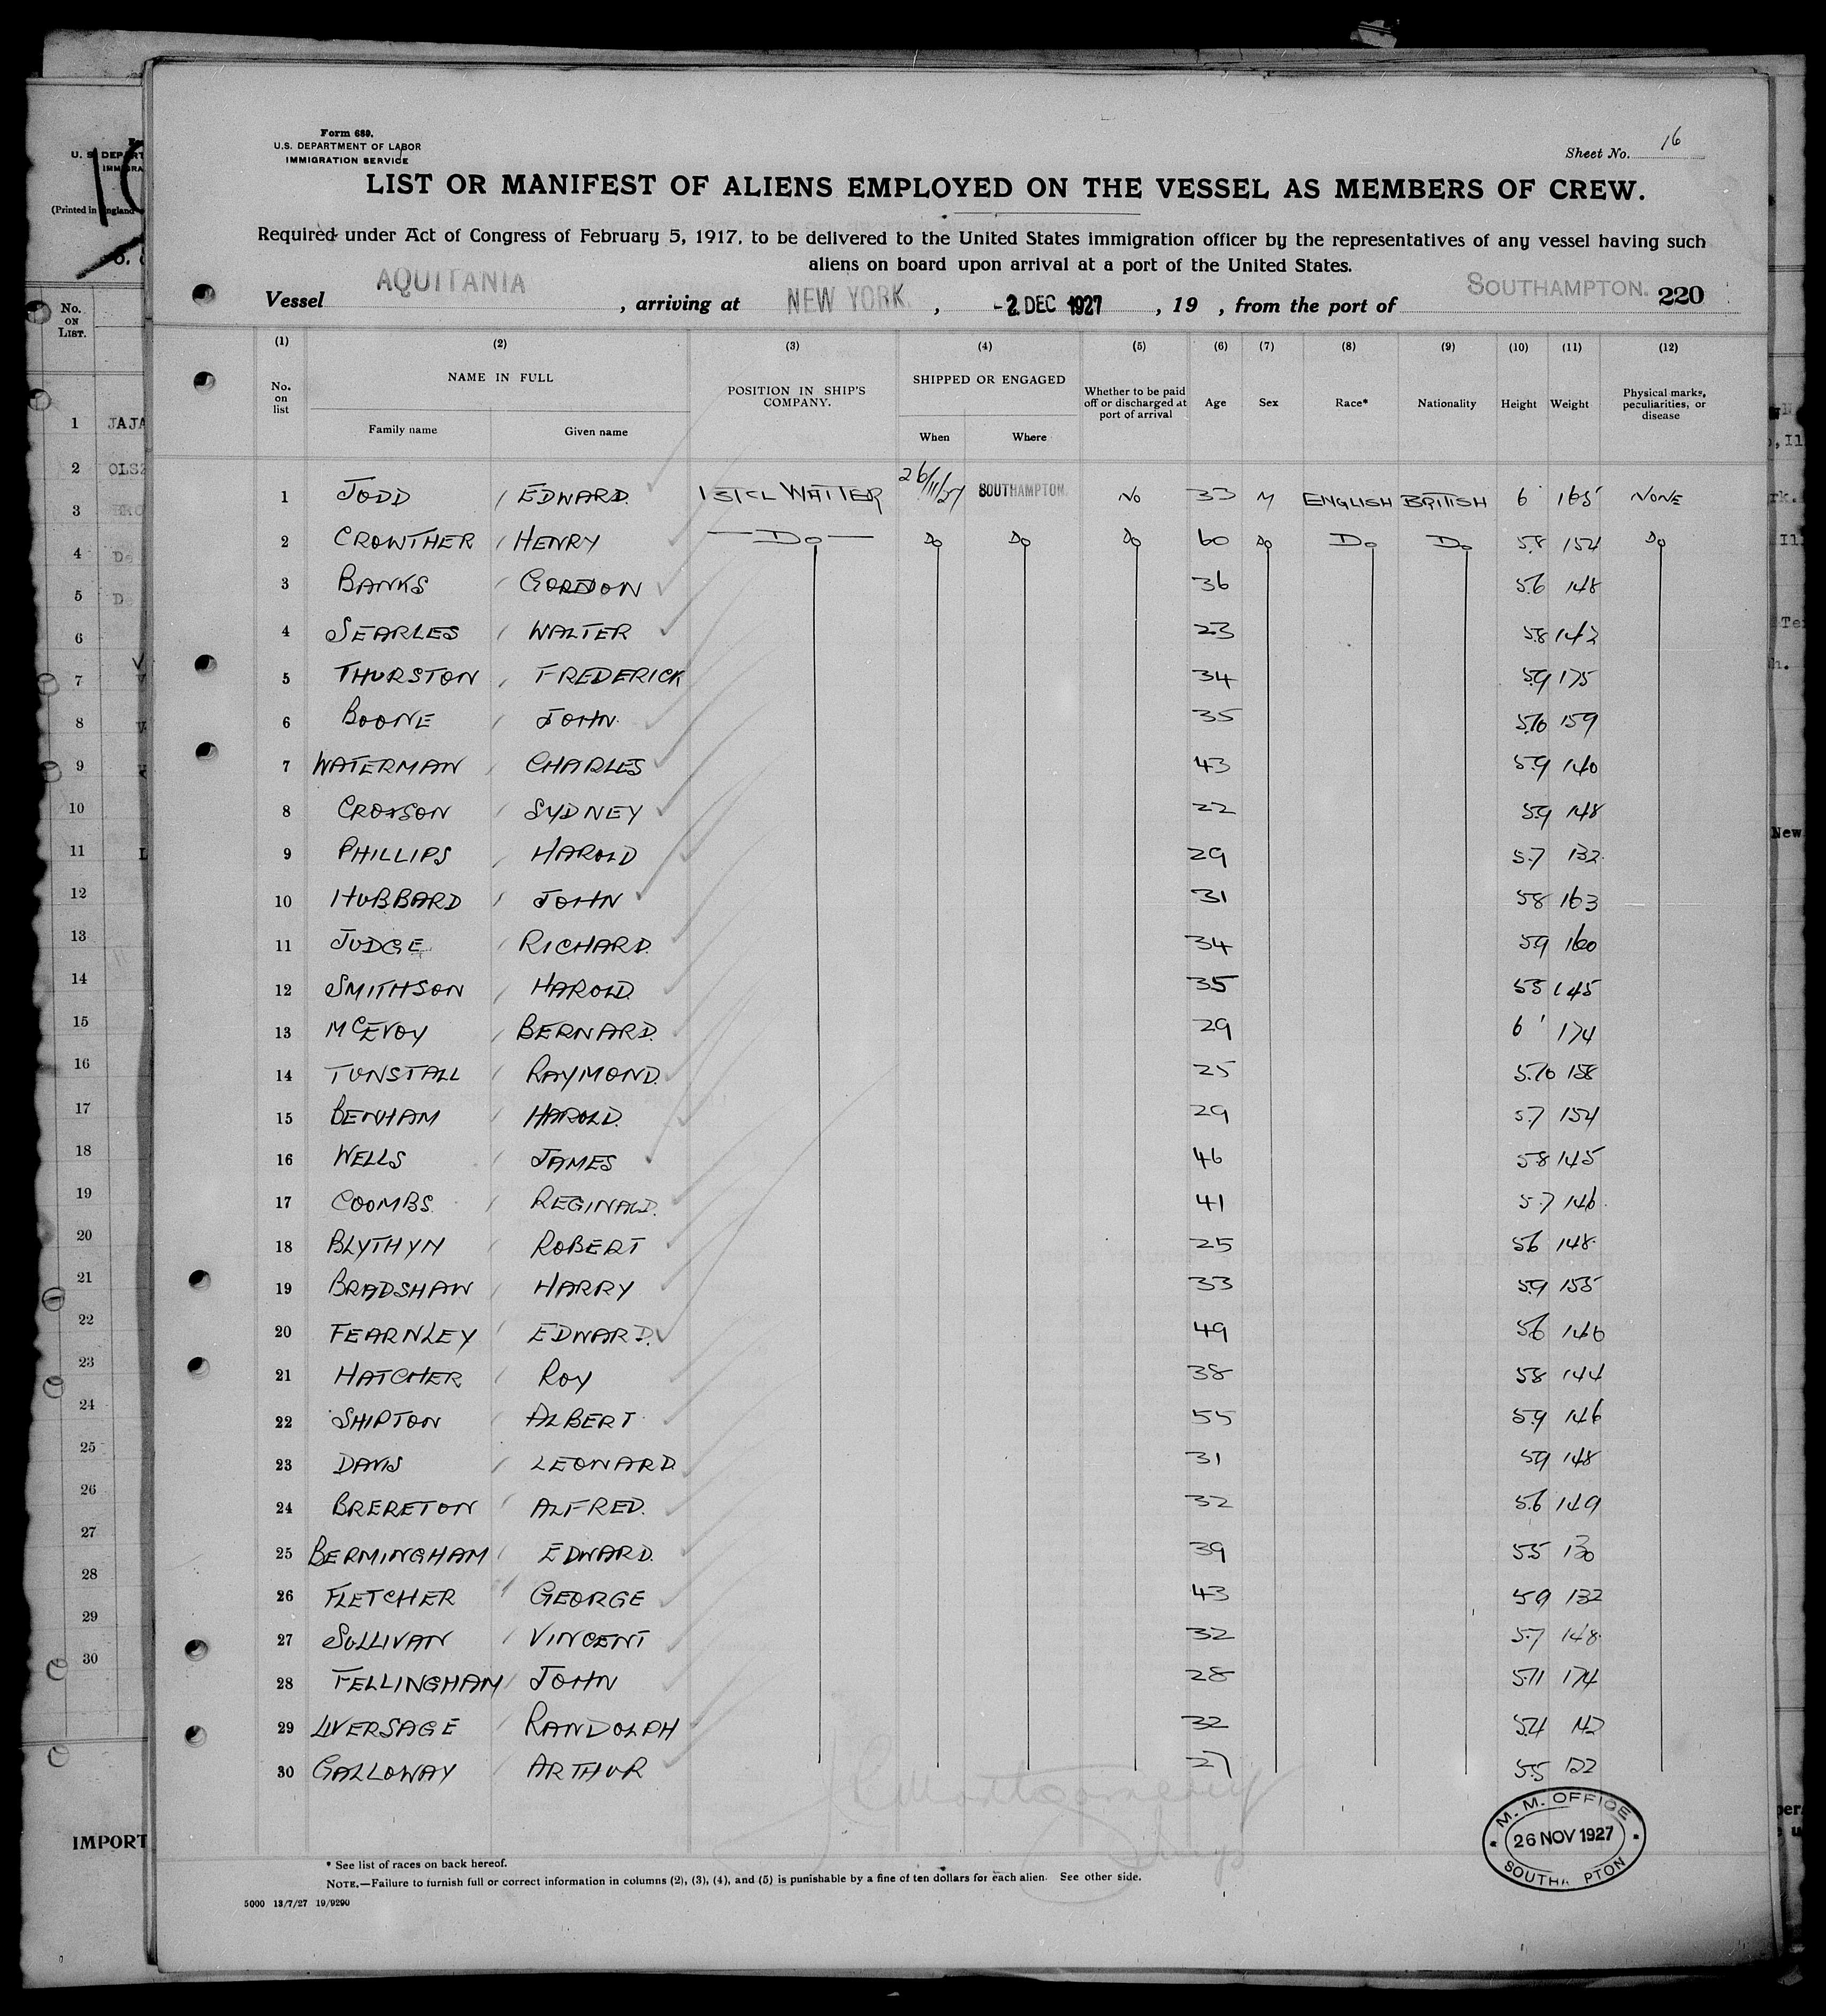 Form 689.
U.S. DEPARTMENT OF LABOR
IMMIGRATION SERVICE
Sheet No. 16
LIST OR MANIFEST OF ALIENS EMPLOYED ON THE VESSEL AS MEMBERS OF CREW.
Required under Act of Congress of February 5, 1917, to be delivered to the United States immigration officer by the representatives of any vessel having such
aliens on board upon arrival at a port of the United States.
Vessel AQUITANIA , arriving at NEW YORK. , - 2 DEC 1927 , 19 , from the port of SOUTHAMPTON. 220
(1) (2) (3) (4) (5) (6) (7) (8) (9) (10) (11) (12)
No. on list NAME IN FULL POSITION IN SHIP'S COMPANY. SHIPPED OR ENGAGED Whether to be paid off or discharged at port of arrival Age Sex Race* Nationality Height Weight Physical marks, peculiarities, or disease
Family name Given name When Where
1 JUDD EDWARD. 1ST CL WAITER 26/11/27 SOUTHAMPTON. NO 33 M ENGLISH BRITISH 6 165 NONE
2 CROWTHER HENRY Do Do Do Do 60 Do Do Do 5.8 154 Do
3 BANKS GORDON 36 5.6 148
4 SEARLES WALTER 23 5.8 142
5 THURSTON FREDERICK 34 5.9 175
6 BOONE JOHN. 35 5.10 159
7 WATERMAN CHARLES 43 5.9 140
8 SYDNEY 22 5.9 148
9 PHILLIPS HAROLD 29 5.7 132
10 HUBBARD JOHN 31 5.8 163
11 JUDGE RICHARD. 34 5.9 160
12 SMITHSON HAROLD. 35 5.5 145
13 MCEVOY BERNARD. 29 6' 174
14 TUNSTALL RAYMOND. 25 5.10 158
15 BENHAM HAROLD. 29 5.7 154
16 WELLS JAMES 46 5.8 145
17 COOMBS. REGINALD. 41 5.7 146
18 BLYTHYN ROBERT 25 5.6 148
19 BRADSHAW HARRY 33 5.9 155
20 FEARNLEY EDWARD. 49 5.6 146
21 HATCHER ROY 38 5.8 144
22 SHIPTON ALBERT 55 5.9 146
23 DAVIS LEONARD. 31 5.9 148
24 BRERETON ALFRED. 32 5.6 149
25 BERMINGHAM EDWARD. 39 5.5 130
26 FLETCHER GEORGE 43 5.9 132
27 SULLIVAN VINCENT 32 5.7 148
28 FELLINGHAM JOHN 28 5.11 174
29 LIVERSAGE RANDOLPH 32 5.4 142
30 GALLOWAY ARTHUR 27 5.5 122
Montgomery
M. M. OFFICE
26 NOV 1927
SOUTHA PTON
* See list of races on back hereof.
NOTE.—Failure to furnish full or correct information in columns (2), (3), (4), and (5) is punishable by a fine of ten dollars for each alien. See other side.
5000 13/7/27 19/9290
(Printed in England
No. ON LIST.
1 JAJA
2 OLSZ
3
4 De
5 De
6
7
8
9
10
11
12
13
14
15
16
17
18
19
20
21
22
23
24
25
26
27
28
29
30
IMPORT
New